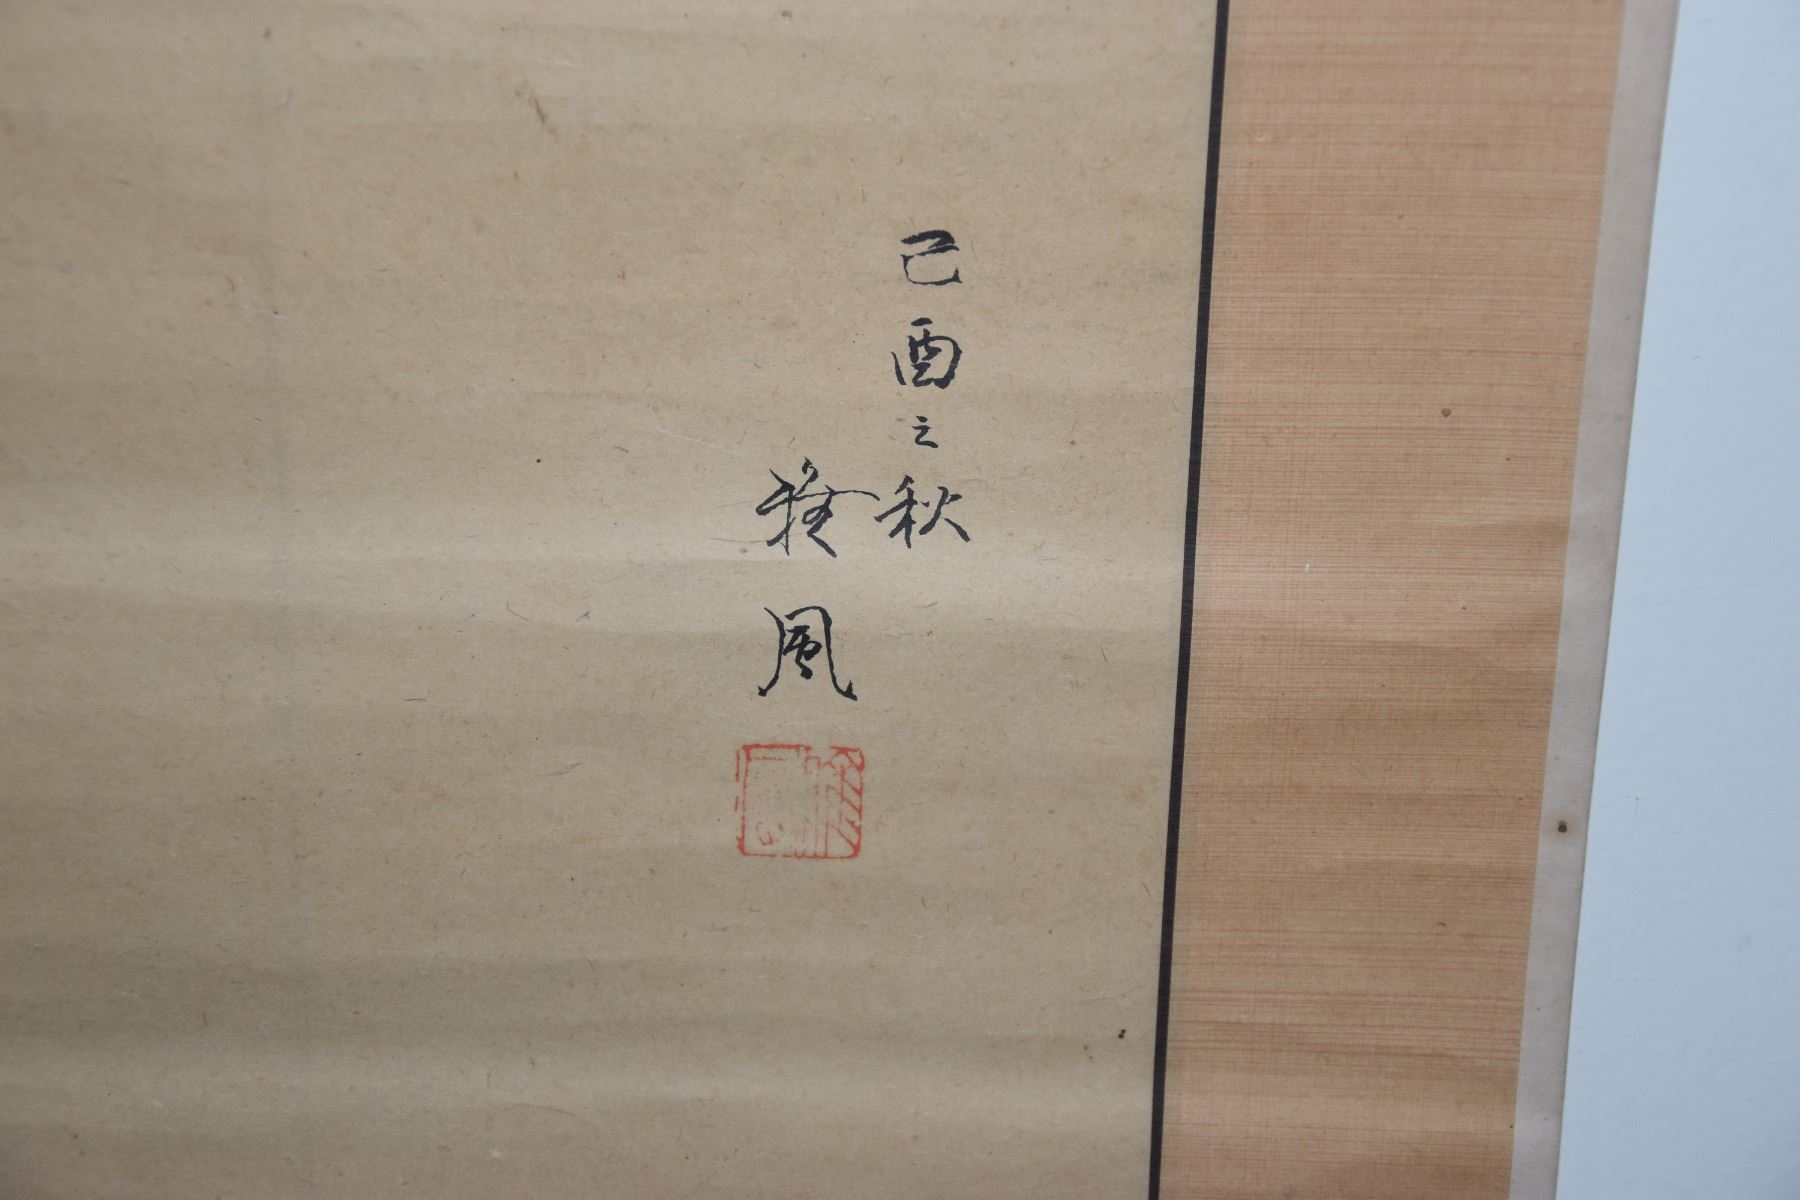 己酉之秋
雅風